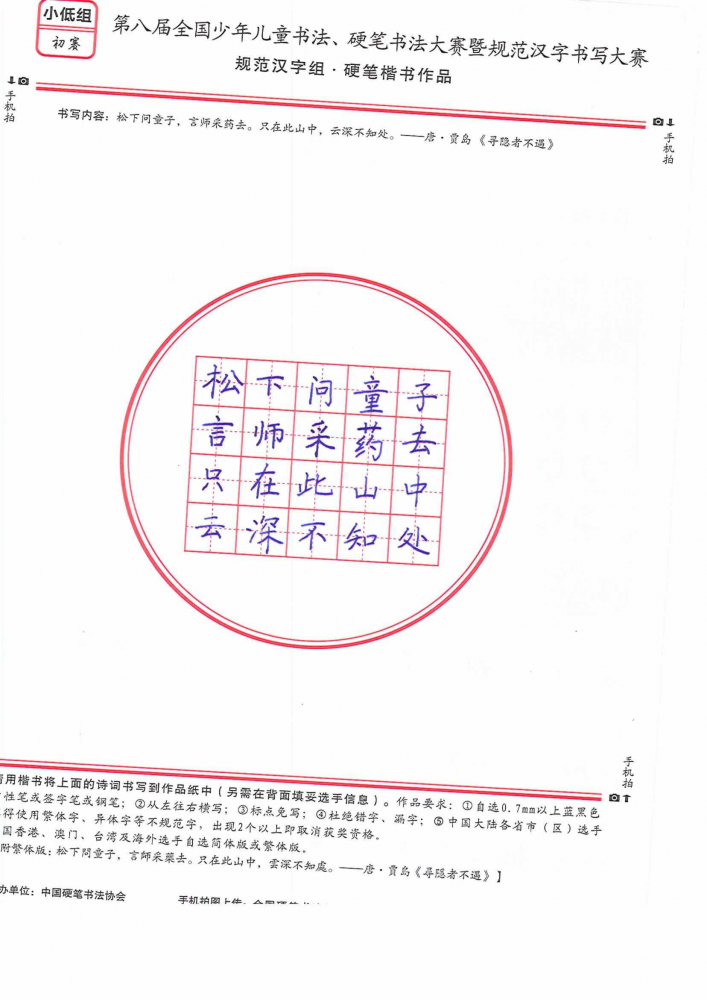 小低组
初赛
第八届全国少年儿童书法、硬笔书法大赛暨规范汉字书写大赛
规范汉字组·硬笔楷书作品
手机拍
手机拍
书写内容：松下问童子，言师采药去。只在此山中，云深不知处。——唐·贾岛《寻隐者不遇》
松下问童子
言师采药去
只在此山中
云深不知处
手机拍
用楷书将上面的诗词书写到作品纸中（另需在背面填妥选手信息）。作品要求：①自选0.7mm以上蓝黑色
性笔或签字笔或钢笔；②从左往右横写；③标点免写；④杜绝错字、漏字；⑤中国大陆各省市（区）选手
得使用繁体字、异体字等不规范字，出现2个以上即取消获奖资格。
国香港、澳门、台湾及海外选手自选简体版或繁体版。
附繁体版：松下問童子，言師采藥去。只在此山中，雲深不知處。——唐·賈島《尋隱者不遇》】
办单位：中国硬笔书法协会
手机拍图上传：全国硬笔